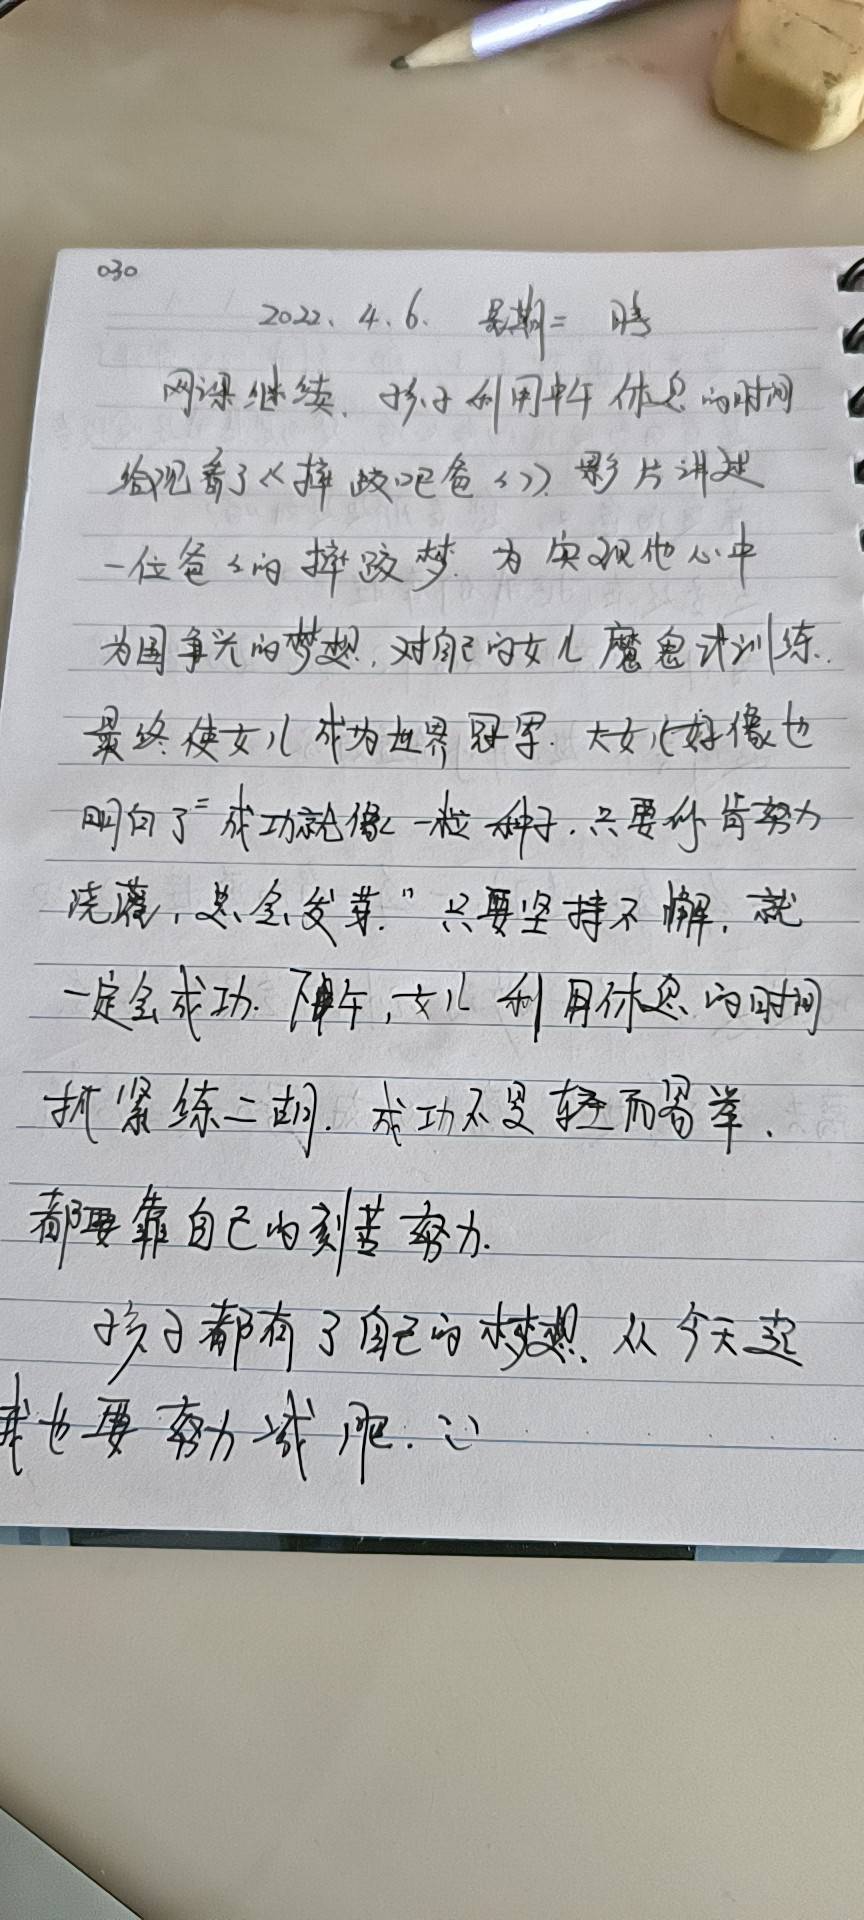 030
2022.4.6. 星期二 晴
网课继续.孩子利用中午休息的时间
给观看了《摔跤吧爸々》.影片讲述
一位爸々的摔跤梦.为实现他心中
为国争光的梦想,对自己的女儿魔鬼式训练.
最终使女儿成为世界冠军.大女儿好像也
明白了"成功就像一粒种子.只要你肯努力
浇灌,总会发芽."只要坚持不懈.就
一定会成功.下午,女儿利用休息的时间
抓紧练二胡.成功不是轻而易举.
都要靠自己的刻苦努力.
孩子都有了自己的梦想.从今天起
我也要努力减肥.